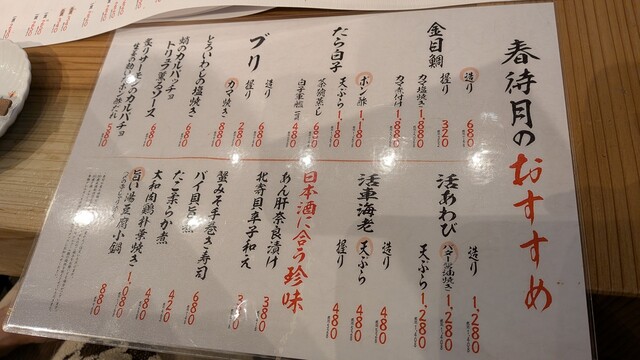 春待月のおすすめ
金目鯛
造り 680
握り 320
カマ塩焼き 1,880
カマ煮付け 1,880
たら白子
ポン酢 1,180
天ぷら 1,180
茶碗蒸し 680
白子軍艦 480
ブリ
造り 680
握り 280
カマ焼き 880
とろいわしの塩焼き 680
蛸のカルパッチョ
トリュフ薫るソース 680
炙りサーモンのカルパッチョ
活あわび
造り 1,280
バター醤油焼き 1,280
天ぷら 1,280
活車海老
造り 480
天ぷら 480
握り 480
日本酒に合う珍味
あん肝奈良漬け 380
北寄貝辛子和え
蟹みそ手巻き寿司
バイ貝旨煮 680
たこ柔らか煮 420
大和肉鶏朴葉焼き 1,080
旨い湯豆腐小鍋 880